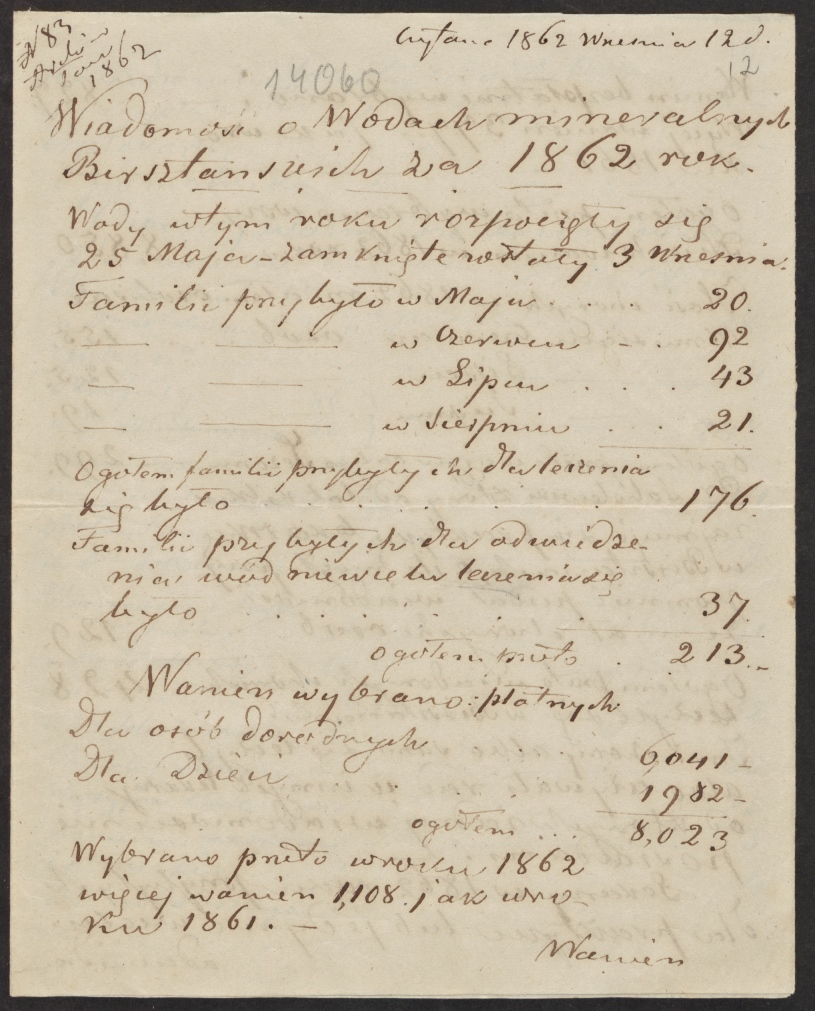 N 83
1862
Czytano 1862 Wresnia 12 d.
12
14060
Wiadomość o Wodach mineralnych
Birsztanskich za 1862 rok.
Wody w tym roku rozpoczęty się
25 Maja - zamknięte zostały 3 Wresnia.
Familii przybyło w Maju . . . 20.
— — w Czerwcu - . 92
— — w Lipcu . . . 43
— — w Sierpniu . . . 21.
Ogołem familii przybyłych dla leczenia
się było . . . . . . 176.
Familii przybyłych dla odwiedze-
nia wód niewielu leczenia się
było . . . . . 37.
ogołem preto . 213.-
Wanien wybrano: płatnych
Dla osób dorosłych . . . 6,041 -
Dla Dzieci . . . . . 1982 -
ogołem ... 8,023
Wybrano preto w roku 1862
więcej wanien 1,108. jak w ro-
ku 1861. -
Wanien